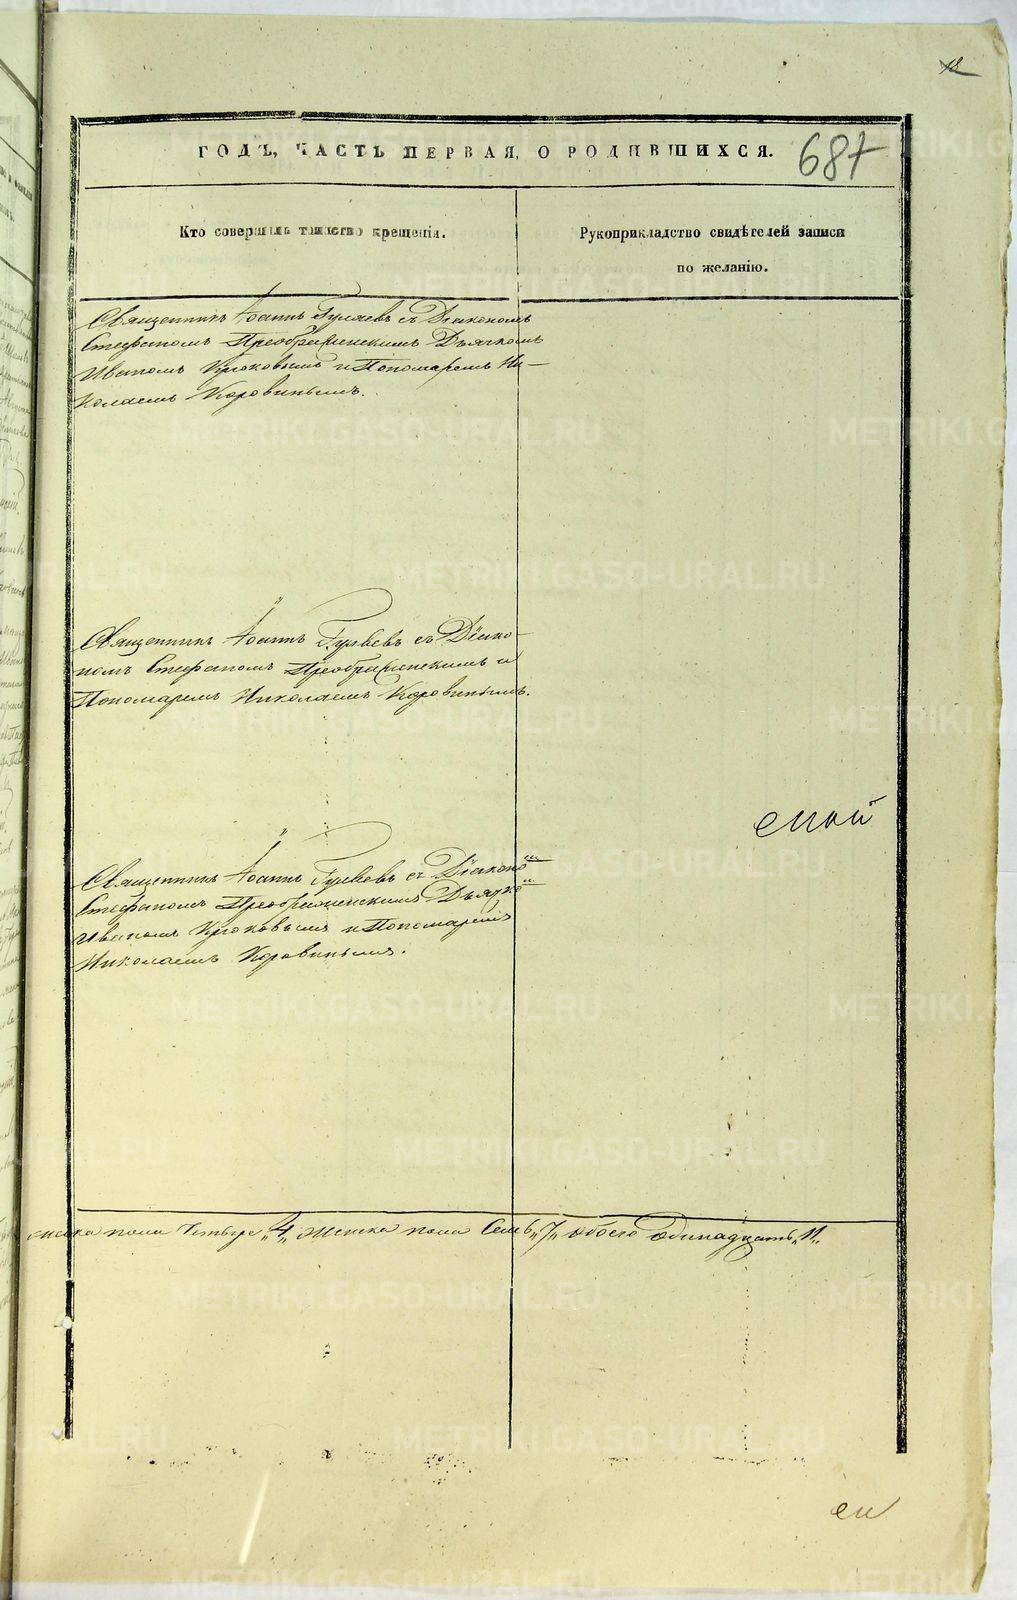 687
ГОДЪ, ЧАСТЬ ПЕРВАЯ, О РОДИВШИХСЯ.
Кто совершилъ таинство крещенія.
Рукоприкладство свидѣтелей записи
по желанію.
Священникъ Іоаннъ Гуляевъ съ Діакономъ
Стефаномъ Преображенскимъ Дьячкомъ
Иваномъ Крюковымъ и Пономаремъ Ни-
колаемъ Коровинымъ.
Священникъ Іоаннъ Гуляевъ съ Діако-
номъ Стефаномъ Преображенскимъ и
Пономаремъ Николаемъ Коровинымъ.
Священникъ Іоаннъ Гуляевъ съ Діакономъ
Стефаномъ Преображенскимъ Дьячкомъ
Иваномъ Крюковымъ и Пономаремъ
Николаемъ Коровинымъ.
пола четыре „4„ женска пола Семь „7„ обоего одинадцать „11„
METRIKI.GASO-URAL.RU